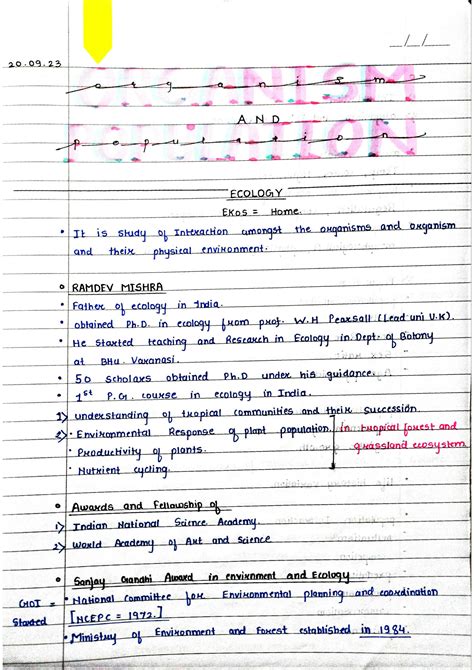 __/__/____
20.09.23
ORGANISM
organism
AND
POPULATION
population
ECOLOGY
Ekos = Home.
• It is study of Interaction amongst the organisms and organism
and their physical environment.
o RAMDEV MISHRA
• Father of ecology in India.
• obtained Ph.D. in ecology from prof. W.H Pearsall (Lead uni U.K).
• He Started teaching and Research in Ecology in Dept. of Botany
at BHU. Varanasi.
• 50 Scholars obtained Ph.D under his guidance.
• 1st P.G. course in ecology in India.
1) understanding of tropical communities and their succession.
2) • Environmental Response of plant population. in tropical forest and
• Productivity of plants. grassland ecosystem
• Nutrient cycling.
o Awards and Fellowship of
1) Indian National Science Academy.
2) World Academy of Art and science
o Sanjay Gandhi Award in envirnment and Ecology
• National Committee for Environmental planning and coordination
[NCEPC = 1972.]
Started
• Ministry of Environment and Forest established in 1984.